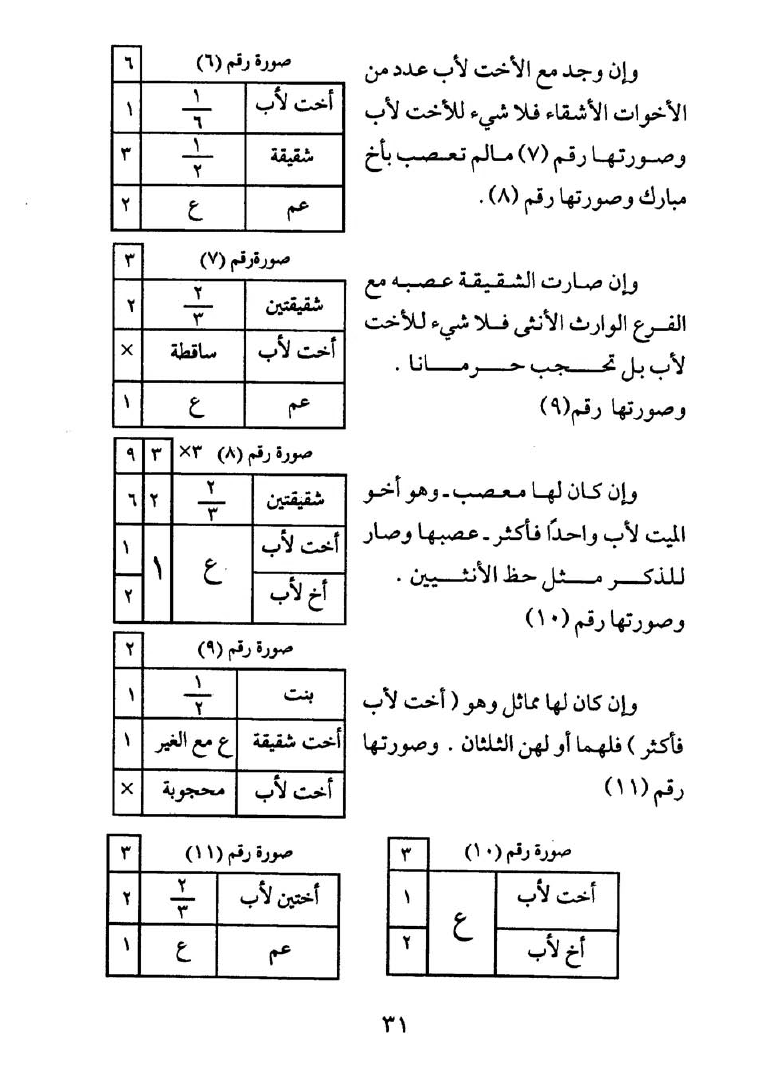 وإن وجد مع الأخت لأب عدد من
الأخوات الأشقاء فلا شيء للأخت لأب
وصورتها رقم (٧) مالم تعصب بأخ
مبارك وصورتها رقم (٨).
صورة رقم (٦) ٦
أخت لأب ١/٦ ١
شقيقة ١/٢ ٣
عم ع ٢
وإن صارت الشقيقة عصبه مع
الفرع الوارث الأنثى فلا شيء للأخت
لأب بل تحجب حرمانا .
وصورتها رقم(٩)
صورة رقم (٧) ٣
شقيقتين ٢/٣ ٢
أخت لأب ساقطة ×
عم ع ١
وإن كان لها معصب ـ وهو أخو
الميت لأب واحدًا فأكثر ـ عصبها وصار
للذكر مثل حظ الأنثيين .
وصورتها رقم (١٠)
صورة رقم (٨) ٣× ٣ ٩
شقيقتين ٢/٣ ٢ ٦
أخت لأب ع ١ ١
أخ لأب ٢
وإن كان لها مماثل وهو ( أخت لأب
فأكثر ) فلهما أو لهن الثلثان . وصورتها
رقم (١١)
صورة رقم (٩) ٢
بنت ١/٢ ١
أخت شقيقة ع مع الغير ١
أخت لأب محجوبة ×
صورة رقم (١٠) ٣
أخت لأب ع ١
أخ لأب ٢
صورة رقم (١١) ٣
أختين لأب ٢/٣ ٢
عم ع ١
٣١